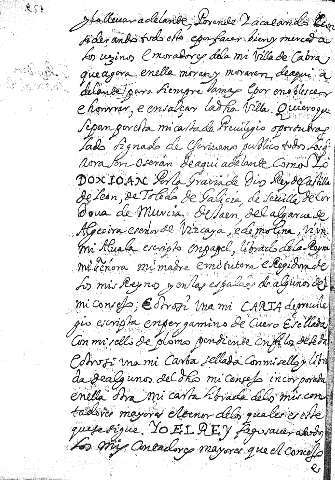 y haller a delande, Porende Yacatando E con
siderando todo esto e por facer bien y merced a
los vezinos e moradores dela mi Villa de Cabra
que agora en ella moran y moraren, de aqui a
delante para siempre jamas e por enoblescer
e honrrar, e ensalçar la dha Villa. Quiero que
sepan por esta mi carta de Previlegio o por su tras
lado signado de escrivano publico todos los q
agora son o seran de aqui adelante Como YO
DON JOAN Por la gracia de Dios Rey de Castilla
de Leon, de Toledo de Galicia de Sevilla, de Cor
dova de Murcia, de Jaen, del algarve de
Algecira e señor de Vizcaya, e de molina, Vi un
mi Alvala escripto en papel, librado dela Reyna
mi señora mi madre e mi tutora e Regidora de
los mis Reynos, y en las espaldas de algunos del
mi consejo; E otrosi una mi CARTA de previle
gio escripta en pergamino de cuero E sellada
con mi sello de plomo pendiente en filos de seda
e otrosi una mi Carta sellada con mi sello y libra
da de algunos del dho mi consejo incorporada
en ella otra mi carta librada delos mis con
tadores mayores el tenor delos quales es este
que se sigue. YO EL REY fago saver a vos
los mis Contadores mayores que el Concejo